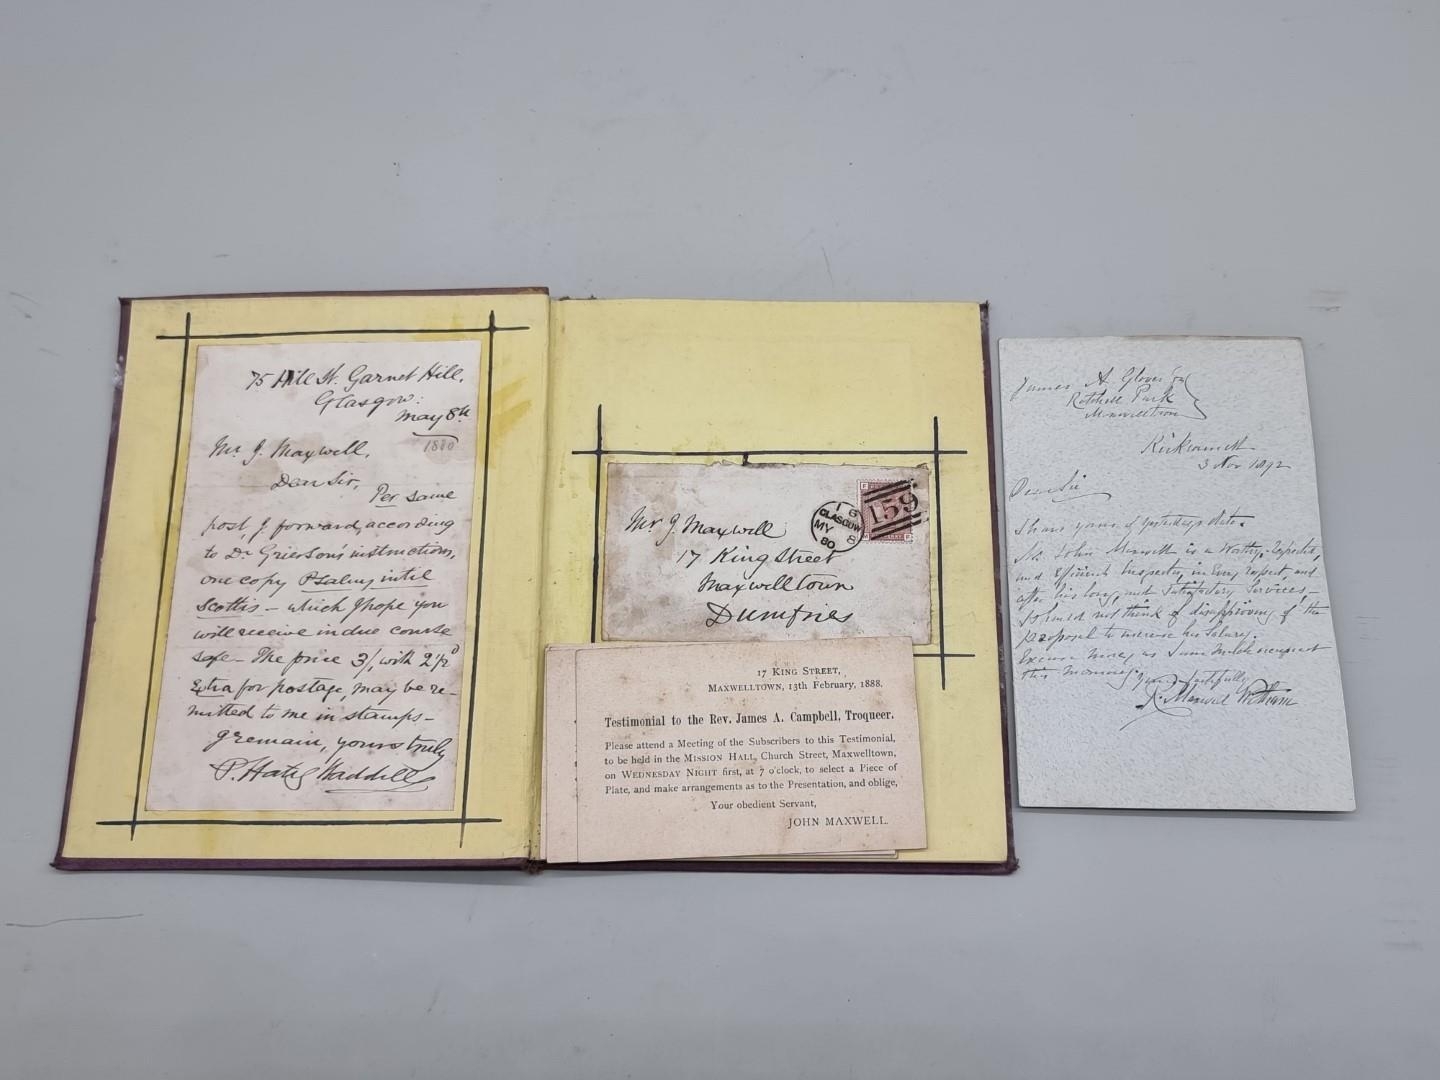 75 Hill St. Garnet Hill,
Glasgow:
May 8th
1880
Mr J. Maxwell,
Dear Sir,
Per same
post, I forward, according
to Dr Grierson's instructions,
one copy Psalms intil
Scottis – which I hope you
will receive in due course
safe – The price 3/, with 2½d
Extra for postage, may be re-
mitted to me in stamps –
I remain, yours truly
P. Hately Waddell
Mr J. Maxwell
17 King Street
Maxwelltown
Dumfries
GLASGOW
MY 8
80
159
17 King Street,
Maxwelltown, 13th February, 1888.
Testimonial to the Rev. James A. Campbell, Troqueer.
Please attend a Meeting of the Subscribers to this Testimonial,
to be held in the Mission Hall, Church Street, Maxwelltown,
on Wednesday Night first, at 7 o'clock, to select a Piece of
Plate, and make arrangements as to the Presentation, and oblige,
Your obedient Servant,
JOHN MAXWELL.
James A Glover
Rotchell Park
Maxwelltown
3 Nov 1892
Dear Sir
I have yours of yesterday's date.
Mr John Maxwell is a Worthy,
and Efficient Inspector, in Every respect, and
after his long and Satisfactory Services –
I should not think of disapproving of the
Proposal to increase his Salary.
Excuse as I am much occupied
this Morning
Yours faithfully